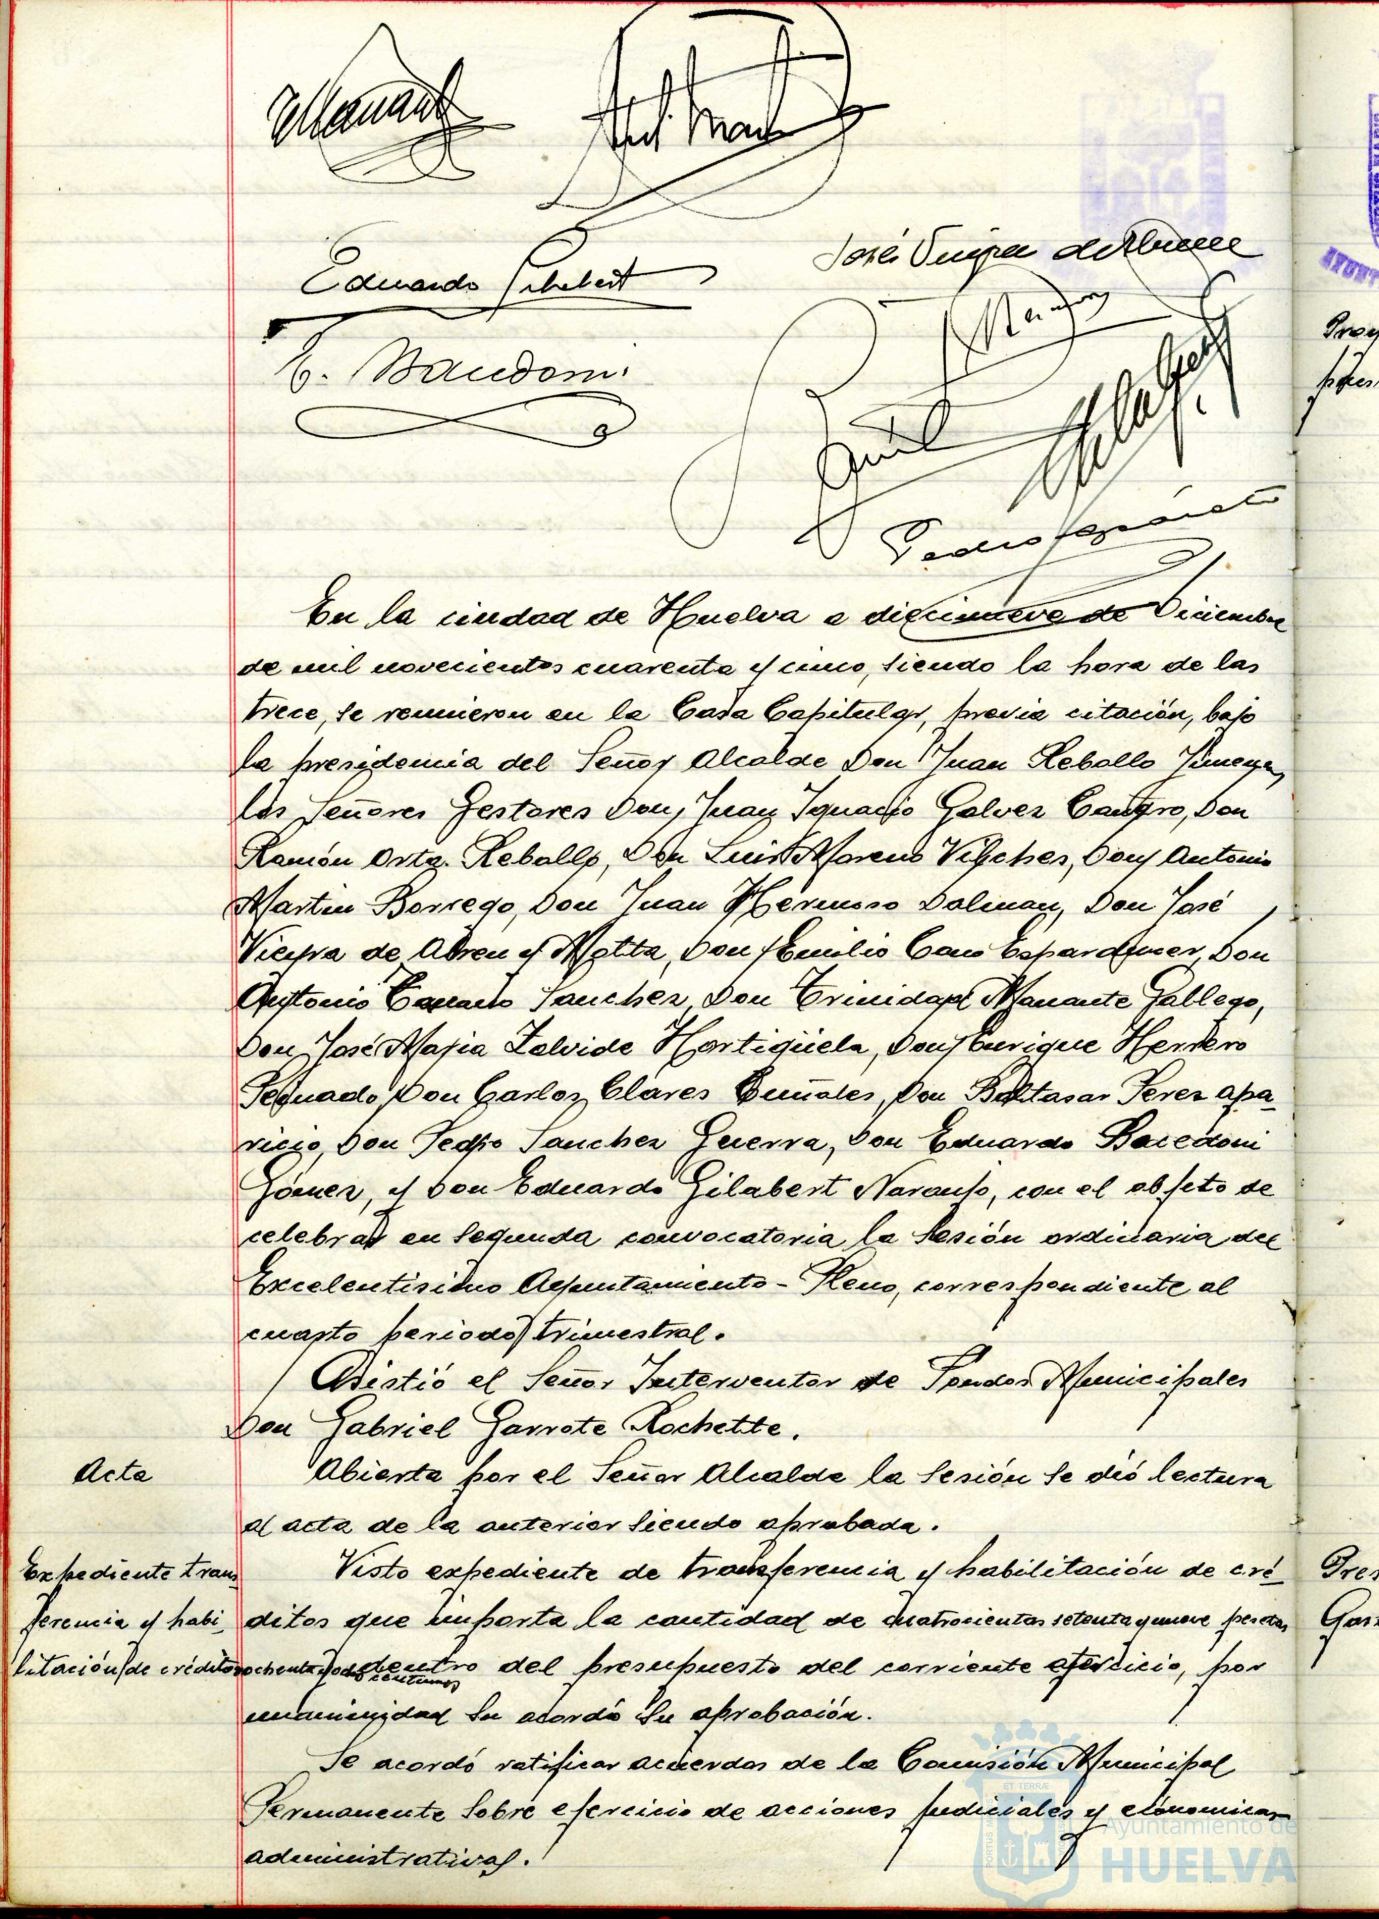 Eduardo Gilabert
José Vieyra de Abreu
E. Bacedoni
Pedro
En la ciudad de Huelva a diecinueve de Diciembre
de mil novecientos cuarenta y cinco, siendo la hora de las
trece, se reunieron en la Casa Capitular, previa citación, bajo
la presidencia del Señor Alcalde Don Juan Rebollo Jimenez,
los Señores Gestores Don Juan Ignacio Galvez Cañero, Don
Ramón Orta Rebollo, Don Luis Moreno Vilches, Don Antonio
Martin Borrego, Don Juan Hermoso Dolman, Don José
Vieyra de Abreu y Motta, Don Emilio Cano Don
Antonio Sanchez, Don Trinidad Manante Gallego,
Don José Maria Zalvide Hortigüela, Don Enrique Herrero
Don Carlos Clares Don Baltasar Perez Apa-
ricio, Don Pedro Sanchez Guerra, Don Eduardo Bacedoni
Gómez, y Don Eduardo Gilabert Naranjo, con el objeto de
celebrar en segunda convocatoria la sesión ordinaria del
Excelentisimo Ayuntamiento - Pleno, correspondiente al
cuarto periodo trimestral.
Asistió el Señor Interventor de Fondos Municipales
Don Gabriel Garrote Rochette.
Acta
Abierta por el Señor Alcalde la sesión se dió lectura
al acta de la anterior siendo aprobada.
Expediente trans
ferencia y habi
litación de créditos
Visto expediente de transferencia y habilitación de cré-
ditos que importa la cantidad de cuatrocientas setenta y nueve pesetas
ochenta y dos centimos dentro del presupuesto del corriente ejercicio, por
unanimidad su acordó su aprobación.
Se acordó ratificar acuerdos de la Comisión Municipal
Permanente sobre ejercicio de acciones judiciales y económicas
administrativas.
Ayuntamiento de
HUELVA